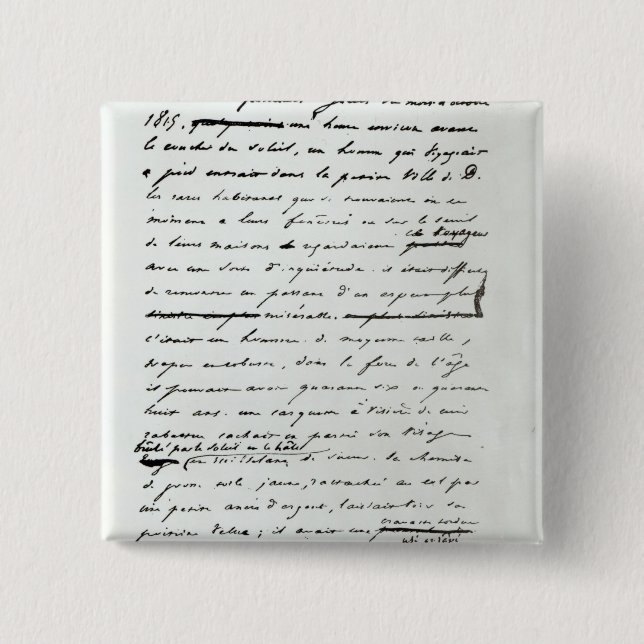 premiers jours du mois d'octobre
1815, une heure environ avant
le coucher du soleil, un homme qui voyageait
à pied entrait dans la petite ville de D.
les rares habitants qui se trouvaient en ce
moment à leurs fenêtres ou sur le seuil
de leurs maisons regardaient ce voyageur
avec une sorte d'inquiétude. il était difficile
de rencontrer un passant d'un aspect plus
misérable.
c'était un homme de moyenne taille,
trapu et robuste, dans la force de l'âge
il pouvait avoir quarante six ou quarante
huit ans. une casquette à visière de cuir
rabattue cachait en partie son visage
brûlé par le soleil et le hâle
et ruisselant de sueur. sa chemise
de grosse toile jaune, rattachée au col par
une petite ancre d'argent, laissait voir sa
poitrine velue; il avait une
cravate tordue